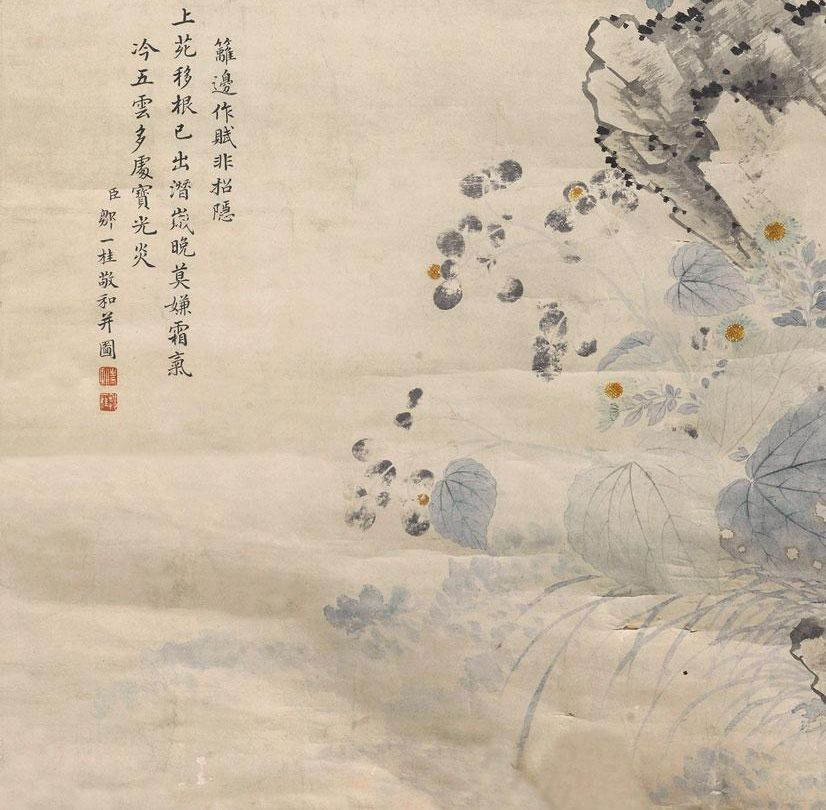 籬邊作賦非招隱
上苑移根已出潛歲晚莫嫌霜氣
冷五雲多處寶光炎
臣鄒一桂敬和并圖